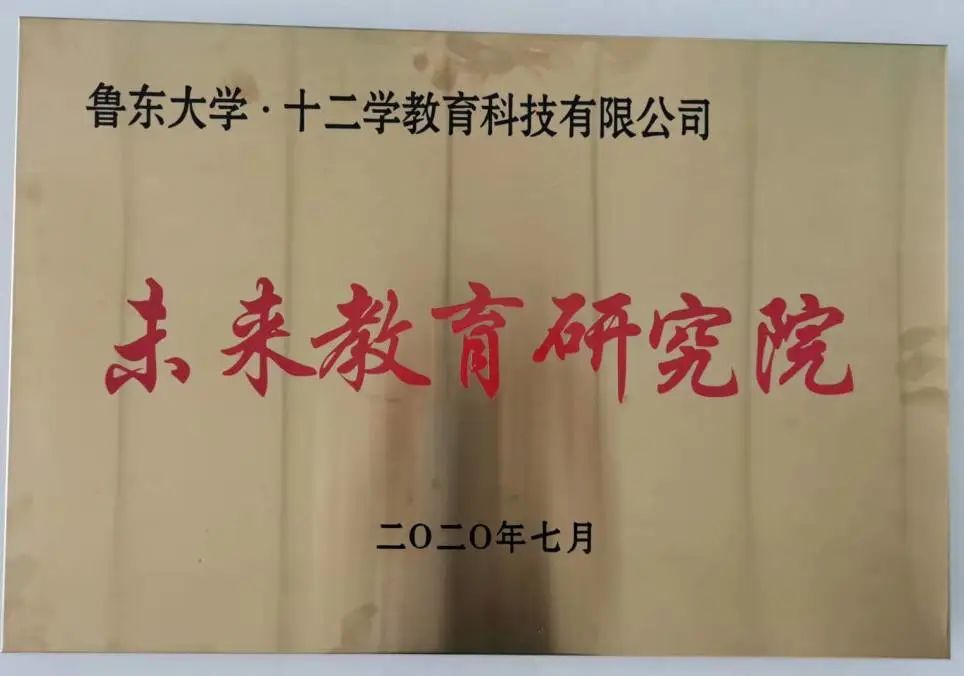 鲁东大学·十二学教育科技有限公司
未来教育研究院
二〇二〇年七月